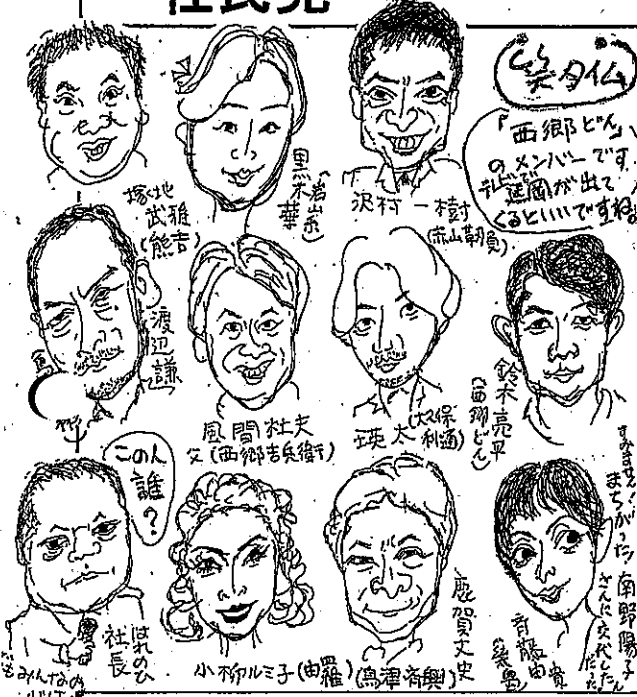 社民党
しら笑タイム
「西郷どん」
のメンバーです。
延岡が出て
くるといいですね
塚地
武雅
(熊吉)
黒木華
(岩山糸)
沢村一樹
(赤山靭負)
渡辺謙
風間杜夫
父(西郷吉兵衛)
瑛太
(大久保
利通)
鈴木亮平
(西郷どん)
この人
誰?
はれのひ
社長
みんなの
小柳ルミ子(由羅)
鹿賀丈史
(島津斉興)
斉藤由貴
(幾島)
すみません!
まちがった!
南野陽子
さんに交代した